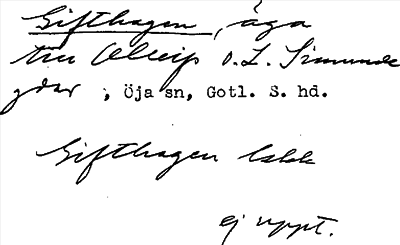 Gifthagen, äga
till Olleifs o. L. Simunde
gdar, Öja sn, Gotl. S. hd.
Gifthagen
ej uppt.